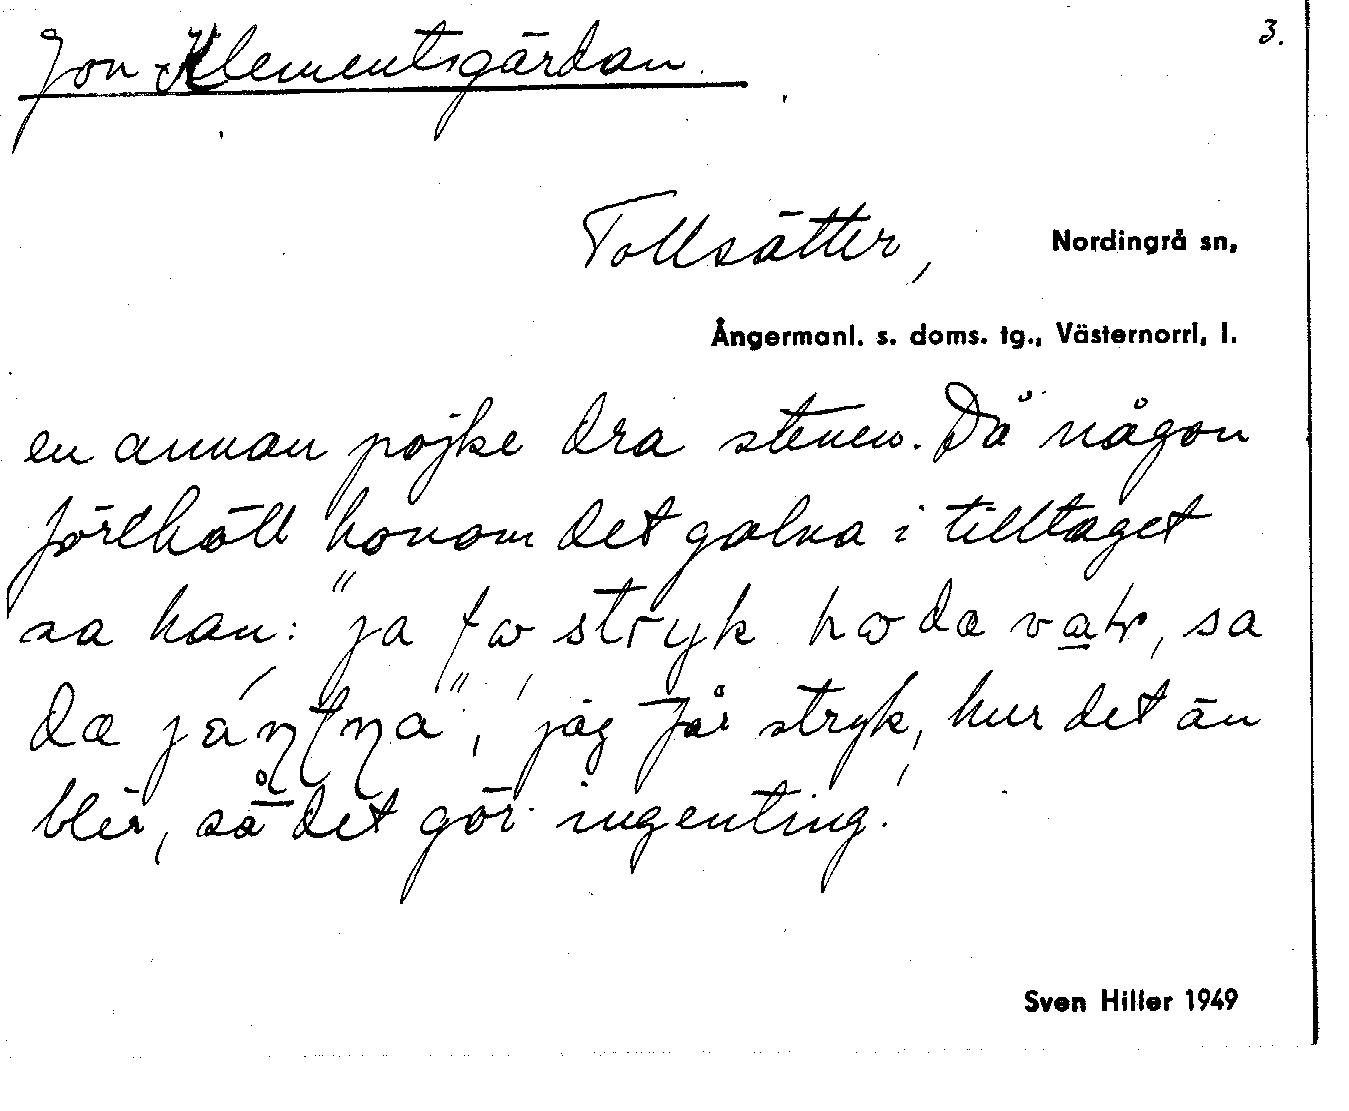 3.
Jon-Klementsgårdan.
Tollsätter, Nordingrå sn,
Ångermanl. s. doms. tg., Västernorrl, l.
en annan pojke dra stenen. Då någon
förehöll honom det galna i tilltaget
sa han: "ja fɷ stryk hɷ dæ var, sa
dæ
", 'jag får stryk, hur det än
blir, så det gör ingenting.'
Sven Hiller 1949